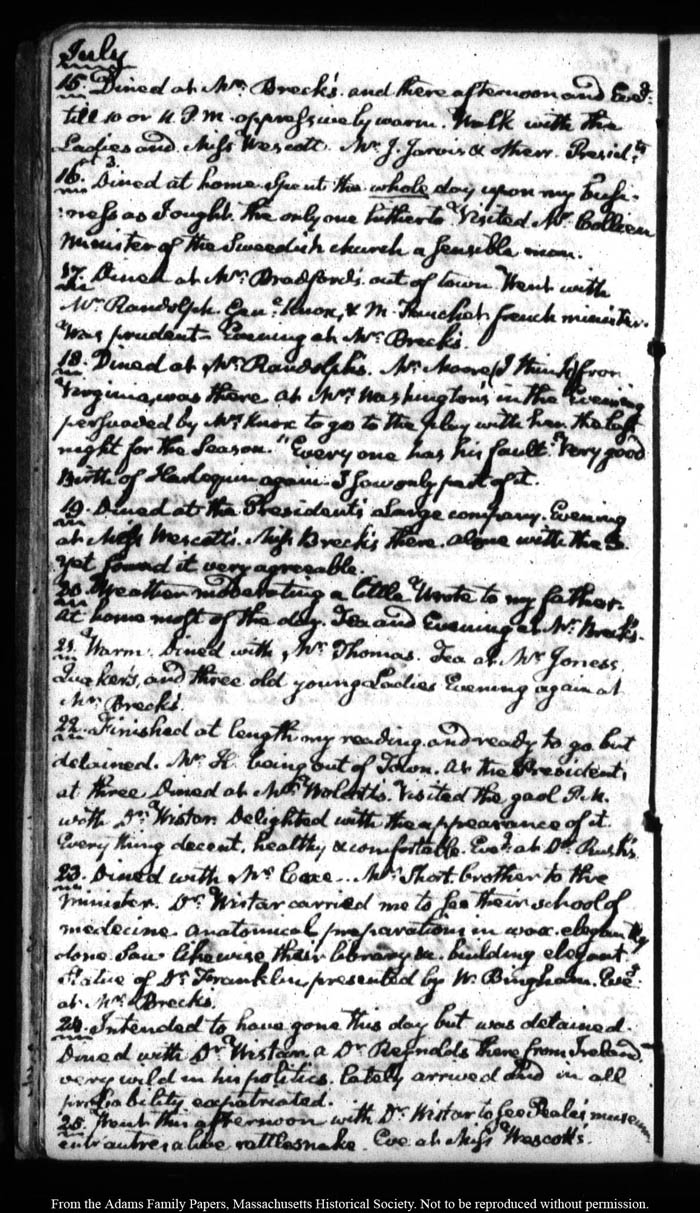 July
15. Dined at Mr. Breck's. and there afternoon and Eveg.
till 10 or 11. P.M. oppressively warm. Walk with the
Ladies and Miss Wescott. Mr. J. Jarvis & others. Presidts.
at 3.
16. Dined at home. Spent the whole day upon my busi-
:ness as I ought. the only one hitherto. Visited Mr. Colleen
Minister of the Sweedish church a sensible man.
17. Dined at Mr. Bradford's. out of town. Went with
Mr. Randolph. Genl. Knox, & M. Fauchet french minister.
Was prudent—Evening at Mr. Breck's.
18. Dined at Mr. Randolph's. Mr. Moore (I think) from
Virginia, was there. At Mrs. Washington's in the Evening
persuaded by Mrs. Knox to go to the play with her. the last
night for the Season. "Every one has his fault." Very good
Birth of Harlequin again. I saw only part of it.
19. Dined at the President's a large company. Evening
at Miss Wescott's. Miss Breck's there. alone with the 3.
yet found it very agreeable.
20. Weather moderating a little. Wrote to my father.
At home most of the day. Tea and Evening at Mr. Breck's.
21. Warm. Dined with Mr. Thomas. Tea at Mr. Jones's,
Quaker's, and three old young Ladies Evening again at
Mr. Breck's.
22. Finished at length my reading. and ready to go but
detained. Mr. H. being out of Town. At the President's
at three. Dined at Mr. Wolcott's. Visited the gaol P.M.
with Dr. Wistar. Delighted with the appearance of it.
Every thing decent, healthy & comfortable. Eveg. at Dr. Rush's.
23. Dined with Mr. Coxe. Mr. Short brother to the
minister. Dr. Wistar carried me to see their school of
medecine. anatomical preparations in wax. elegantly
done. Saw likewise their library &c. building elegant.
Statue of Dr. Franklin, presented by W. Bingham. Eveg.
at Mr. Breck's.
24. Intended to have gone this day but was detained.
Dined with Dr. Wistar. a Dr. Reynolds there from Ireland.
very wild in his politics. lately arrived and in all
probability expatriated.
25. Went this afternoon with Dr. Wistar to see Peale's museum
entr'autres a live rattlesnake. Eve at Miss Wescott's.
From the Adams Family Papers, Massachusetts Historical Society. Not to be reproduced without permission.